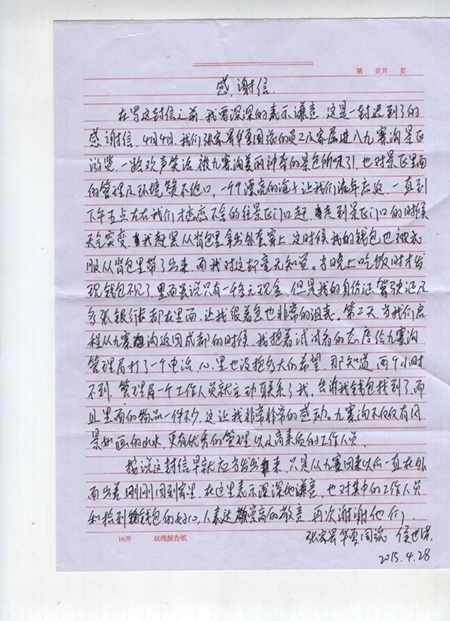 第 页共 页
感谢信
在写这封信之前,我要深深的表示谦意,这是一封迟到了的
感谢信,4月4日,我们张家界华夏国旅的员工及家属进入九寨沟景区
游览,一路欢声笑语,被九寨沟美丽神奇的景色所吸引,也对景区里面
的管理及环境赞不绝口,一个个漂亮的海子让我们流连忘返,一直到
下午五点左右我们才恋恋不舍的往景区门口赶,走到景区门口的时候
天气突变,我赶紧从背包里拿出外套穿上,这时候我的钱包也被衣
服从背包里带了出来,而我对这却毫无知觉。等晚上吃饭时才发
现钱包不见了,里面虽说只有一千多元现金,但是我的身份证驾驶证及
多张银行卡都在里面,让我很着急也非常的沮丧。第二天当我们启
程从九寨沟返回成都的时候,我抱着试试看的态度给九寨沟
管理局打了一个电话,心里也没抱多大的希望,那知道,两个小时
不到,管理局一个工作人员就主动联系了我,告诉我钱包找到了,而
且里面的物品一件不少,这让我非常非常的感动。九寨沟不仅仅有风
景如画的山水,更有优秀的管理以及高素质的工作人员。
按说这封信早就应当写出来,只是从九寨回来以后一直在外
面出差,刚刚回到家里,在这里表示深深地谦意,也对其中的工作人员
和捡到钱包的好心人表达崇高的敬意,再次谢谢他们!
张家界华夏国旅 侯
2015.4.28
16开 双线报告纸